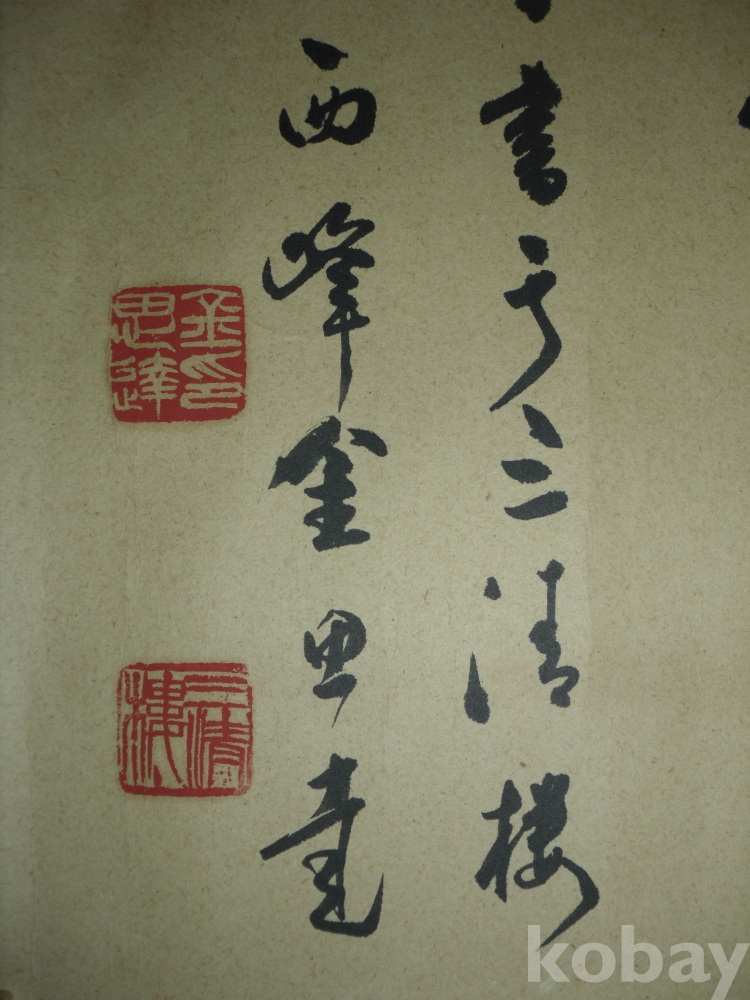 書于三清楼
西峰金思達
金思達印
三清樓
kobay